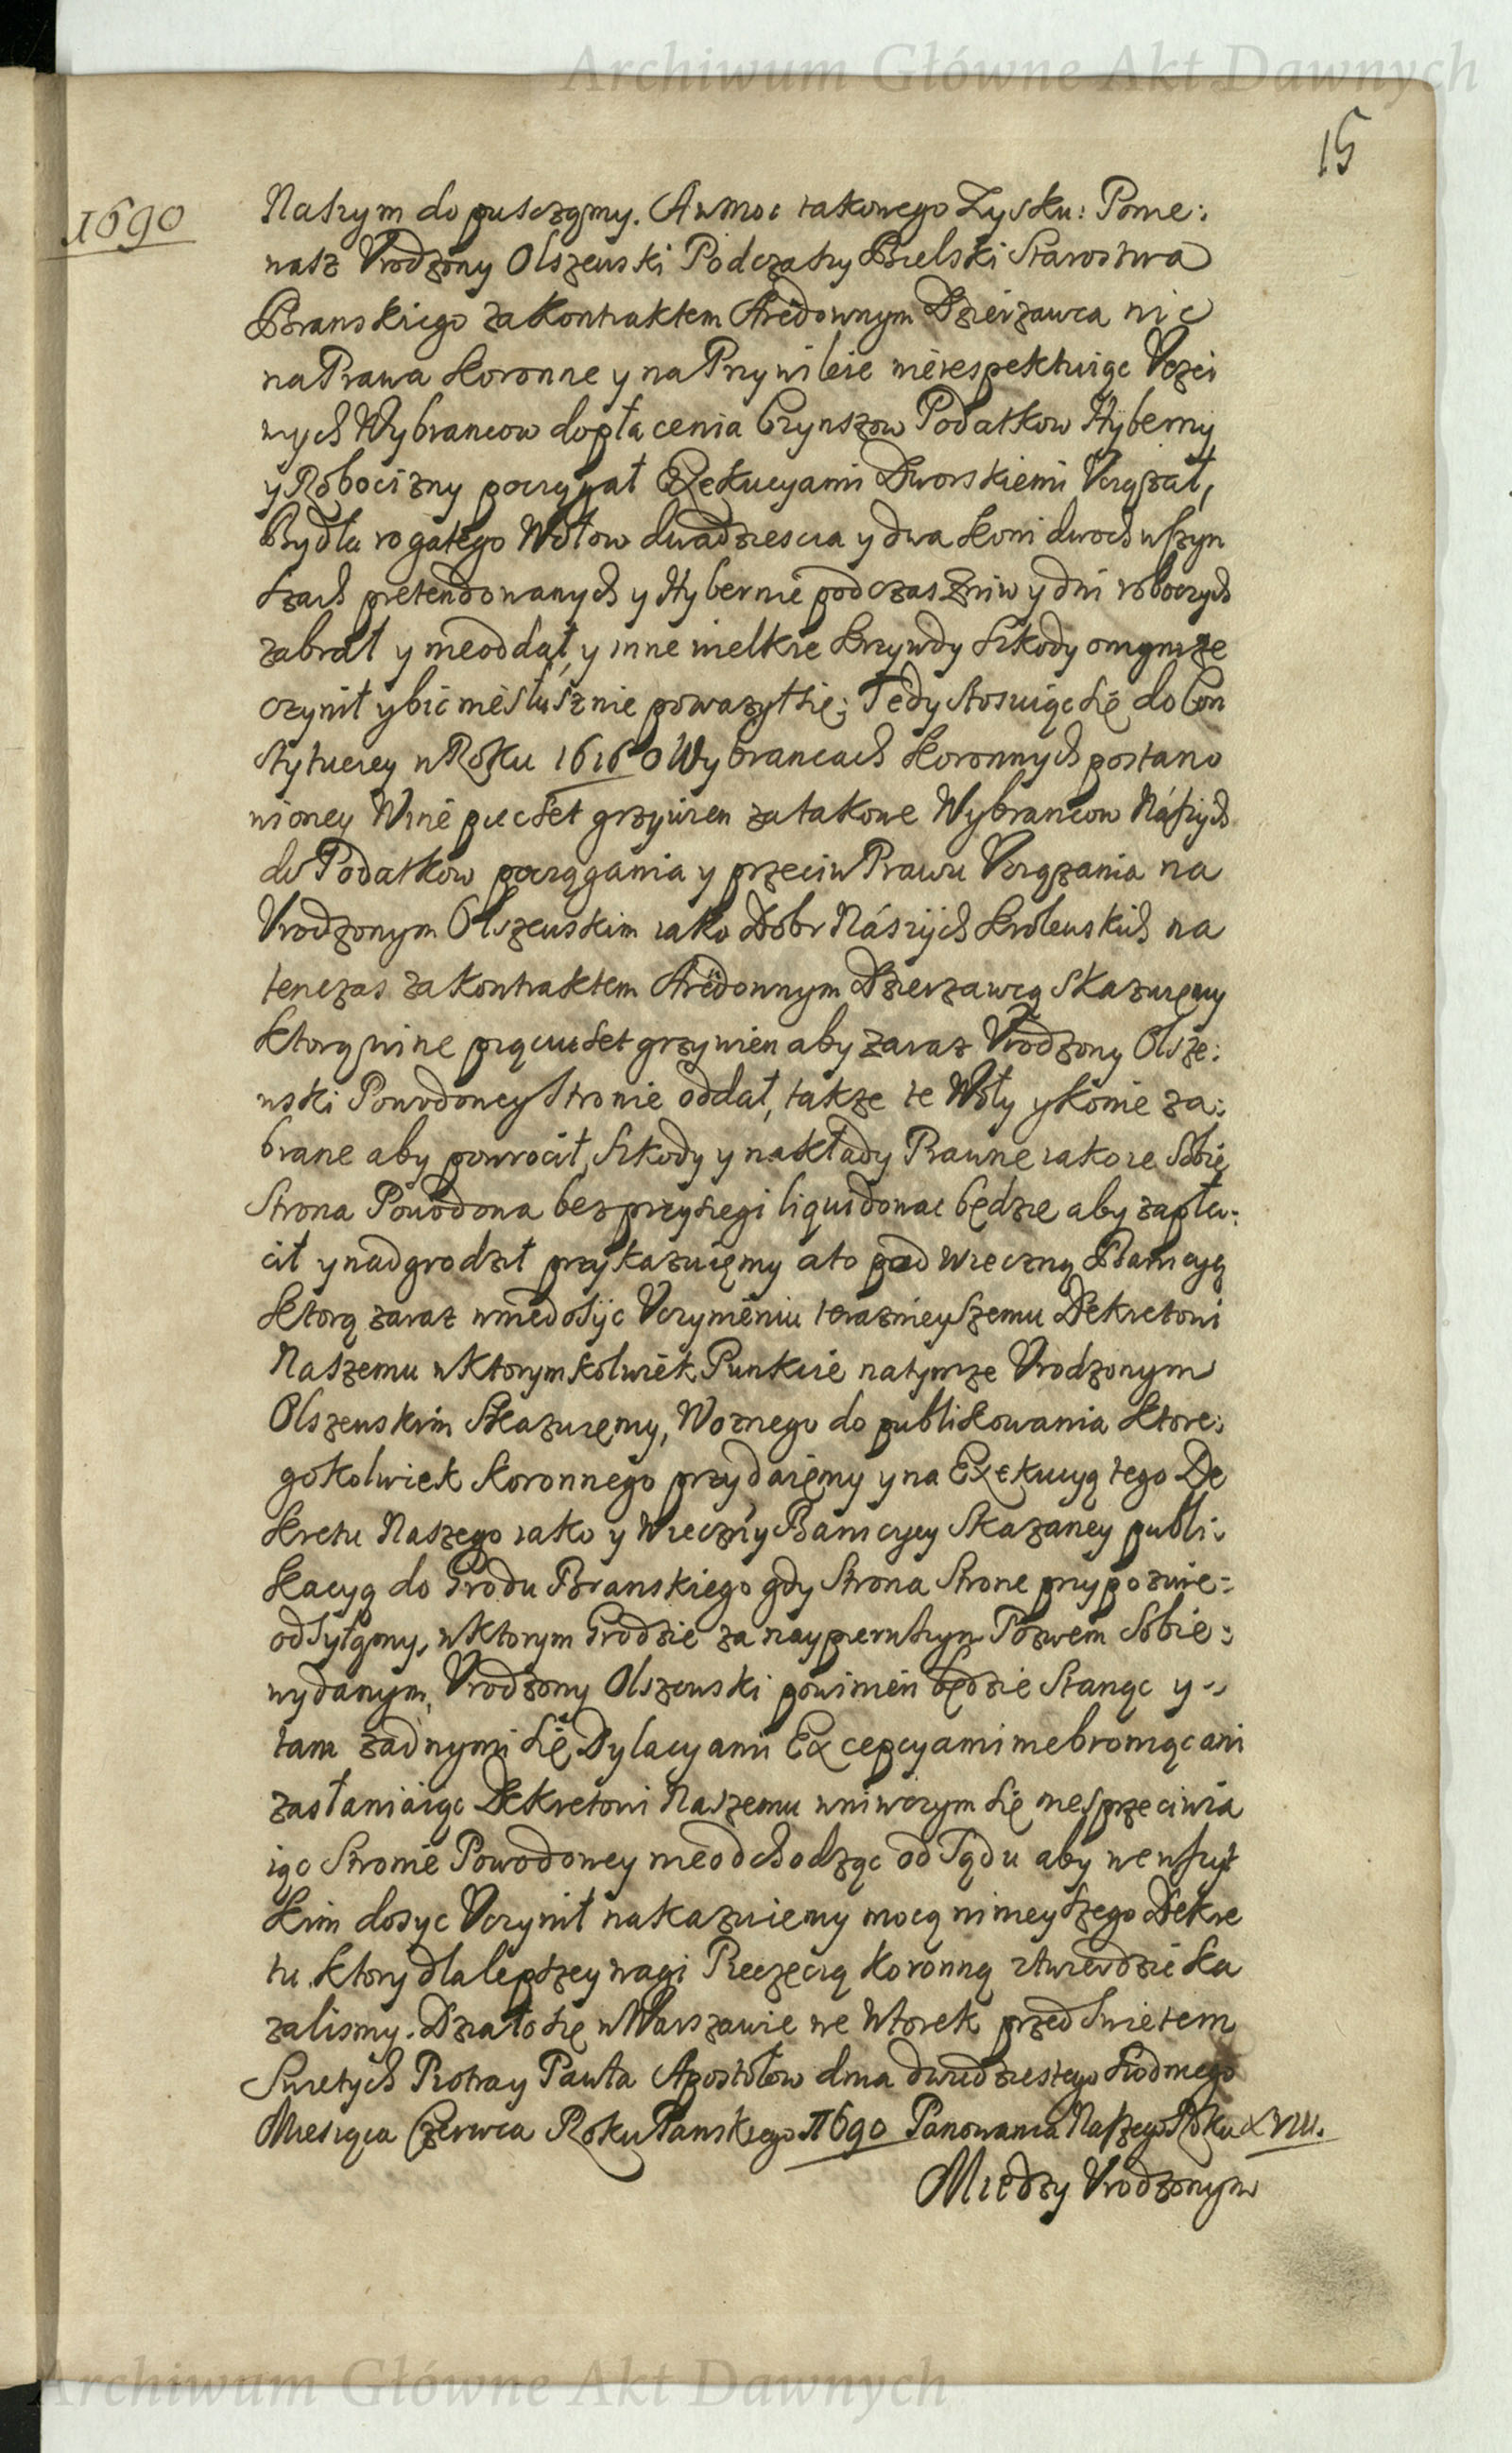 Archiwum Główne Akt Dawnych
15
1690
Naszym dopusczamy. A w moc takowego Zysku: Ponie:
nasz Vrodzony Olszewski Podczaszy Bielski Starostwa
Branskiego za Kontraktem Arędownym Dzierzawca nic
na Prawa Koronne y na Przywileie nierespektuiąc Vczci
wych Wybrancow do płacenia Czynszow Podatkow Hyberny
y Robocizny pociągał Exekucyami Dworskiemi Vciązał,
Bydła rogatego Wołow dwadziescia y dwa Koni dwoch w Czyn
szach pretendowanych y Hybernie podczas Zniw y dni roboczych
zabrał y nieoddał, y inne wielkie Krzywdy Szkody onymze
czynił y bic niesłusznie powazył się; Tedy stosuiąc się do Con
stytucyey w Roku 1616 o Wybrancach Koronnych postano
wioney Winę pięcset grzywien za takowe Wybrancow Nászych
do Podatkow pociągania y przeciw Prawu Vciązania na
Vrodzonym Olszewskim iako Dobr Nászych Krolewskich na
tenczas za Kontraktem Arędownym Dzierzawcą Skazuięmy
Ktorą winę pięciuset grzywien aby zaraz Vrodzony Olsze:
wski Powodowey Stronie oddał, takze te Woły y Konie za:
brane aby powrocił, Szkody y nakłady Prawne iakoie Sobie
Strona Powodowa bez przysięgi liquidowac będzie aby zapła:
cił y nadgrodził przykazuięmy a to pod wieczną Banicyą
Ktorą zaraz w niedosyc Vczynieniu teraznieyszemu Dekretowi
Naszemu w Ktorymkolwiek Punkcie na tymze Vrodzonym
Olszewskim Skazuięmy, Woznego do publikowania Ktore:
gokolwiek Koronnego przydaięmy y na Exekucyą tego De
Kretu Naszego iako y Wieczny Banicyey Skazaney publi:
Kacyą do Grodu Branskiego gdy Strona Strone przypozwie:
odsyłamy, w Ktorym Grodzie za naypierwszym Pozwem Sobie:
wydanym, Vrodzony Olszewski powinien będzie Stanąc y
tam zadnymi się Dylacyami Excepcyami niebroniąc ani
zasłaniáiąc Dekretowi Naszemu w niwczym się niesprzeciwia
iąc Stronie Powodowey nieodchodząc od Sądu aby we wszyt
Kim dosyc Vczynił nakazuiemy mocą ninieyszego Dekre
tu Ktory dla lepszey wagi Pieczęcią Koronną ztwierdzic Ka
zalismy. Działo się w Warszawie we Wtorek przed Swiętem
Swietych Piotra y Pawła Apostołow dnia dwudziestego siodmego
Miesiąca Czerwca Roku Panskiego 1690 Panowania Naszego Roku XVIII.
Między Vrodzonym
Archiwum Główne Akt Dawnych